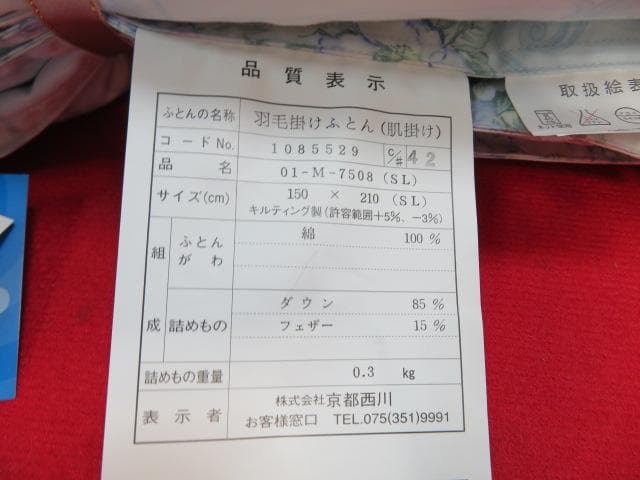 品質表示
ふとんの名称 羽毛掛けふとん(肌掛け)
コードNo. 1085529 C/# 42
品名 01-M-7508(SL)
サイズ(cm) 150 × 210 (SL)
キルティング製(許容範囲+5%、-3%)
組成 ふとんがわ 綿 100%
詰めもの ダウン 85%
フェザー 15%
詰めもの重量 0.3 kg
表示者 株式会社 京都西川
お客様窓口 TEL.075(351)9991
取扱絵表